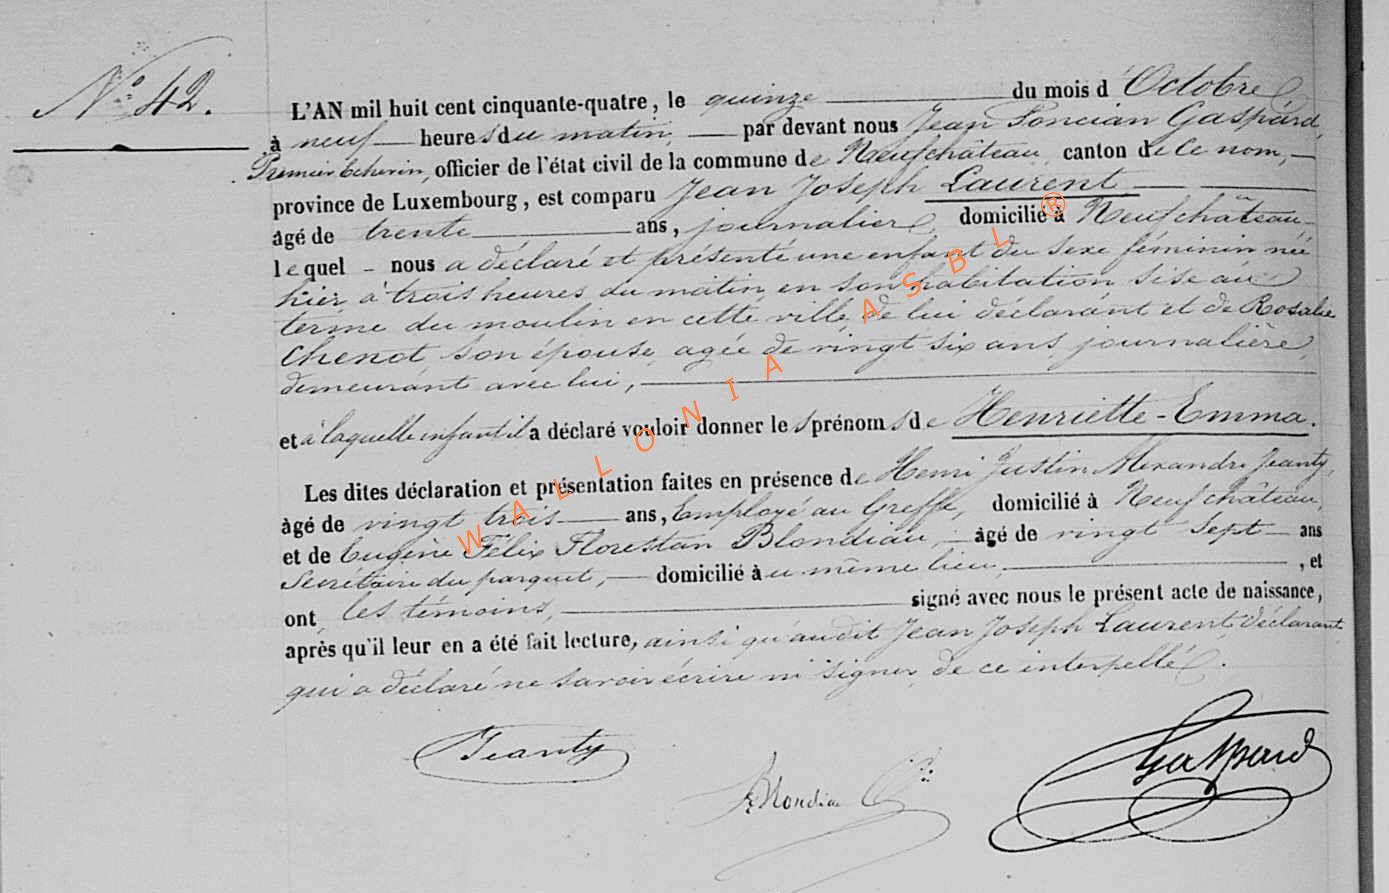 N° 42.
L'AN mil huit cent cinquante-quatre, le quinze du mois d'Octobre
à neuf heures du matin, par devant nous Jean Poncian Gaspard,
Premier Echevin, officier de l'état civil de la commune de Neufchâteau, canton de ce nom,
province de Luxembourg, est comparu Jean Joseph Laurent
âgé de trente ans, journalier, domicilié à Neufchâteau
lequel nous a déclaré et présenté une enfant du sexe féminin née
hier à trois heures du matin, en son habitation sise au
terme du moulin en cette ville, de lui déclarant et de Rosalie
Chenot son épouse, agée de vingt six ans, journalière,
demeurant avec lui,
et à laquelle enfant il a déclaré vouloir donner les prénoms de Henriette-Emma.
Les dites déclaration et présentation faites en présence de Henri Justin Alexandre Jeanty,
âgé de vingt trois ans, Employé au Greffe, domicilié à Neufchâteau,
et de Eugène Félix Florestan Blondiau, âgé de vingt sept ans
Secrétaire du parquet, domicilié au même lieu, , et
ont les témoins, signé avec nous le présent acte de naissance,
après qu'il leur en a été fait lecture, ainsi qu'audit Jean Joseph Laurent, déclarant
qui a déclaré ne savoir écrire ni signer, de ce interpellé.
Jeanty
Blondiau
Gaspard
WALLONIA ASBL ®